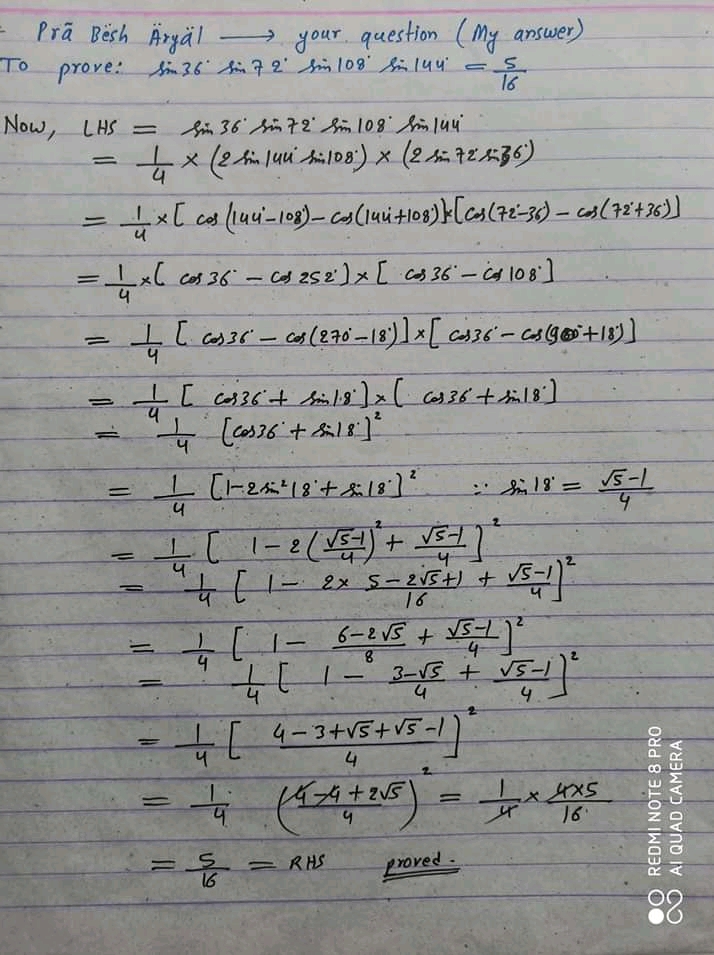 Prã Bësh Äryäl → your question (My answer)
To prove: sin36° sin72° sin108° sin144° = 5/16
Now, LHS = sin36° sin72° sin108° sin144°
= 1/4 × (2 sin144° sin108°) × (2 sin72° sin36°)
= 1/4 × [cos(144°-108°) - cos(144°+108°)] × [cos(72°-36°) - cos(72°+36°)]
= 1/4 × [cos36° - cos252°] × [cos36° - cos108°]
= 1/4 [cos36° - cos(270°-18°)] × [cos36° - cos(90°+18°)]
= 1/4 [cos36° + sin18°] × [cos36° + sin18°]
= 1/4 [cos36° + sin18°]²
= 1/4 [1-2sin²18° + sin18°]² ∵ sin18° = (√5-1)/4
= 1/4 [1 - 2((√5-1)/4)² + (√5-1)/4]²
= 1/4 [1 - 2× (5-2√5+1)/16 + (√5-1)/4]²
= 1/4 [1 - (6-2√5)/8 + (√5-1)/4]²
= 1/4 [1 - (3-√5)/4 + (√5-1)/4]²
= 1/4 [(4-3+√5+√5-1)/4]²
= 1/4 ((4-4+2√5)/4)² = 1/4 × (4×5)/16
= 5/16 = RHS proved.
REDMI NOTE 8 PRO
AI QUAD CAMERA